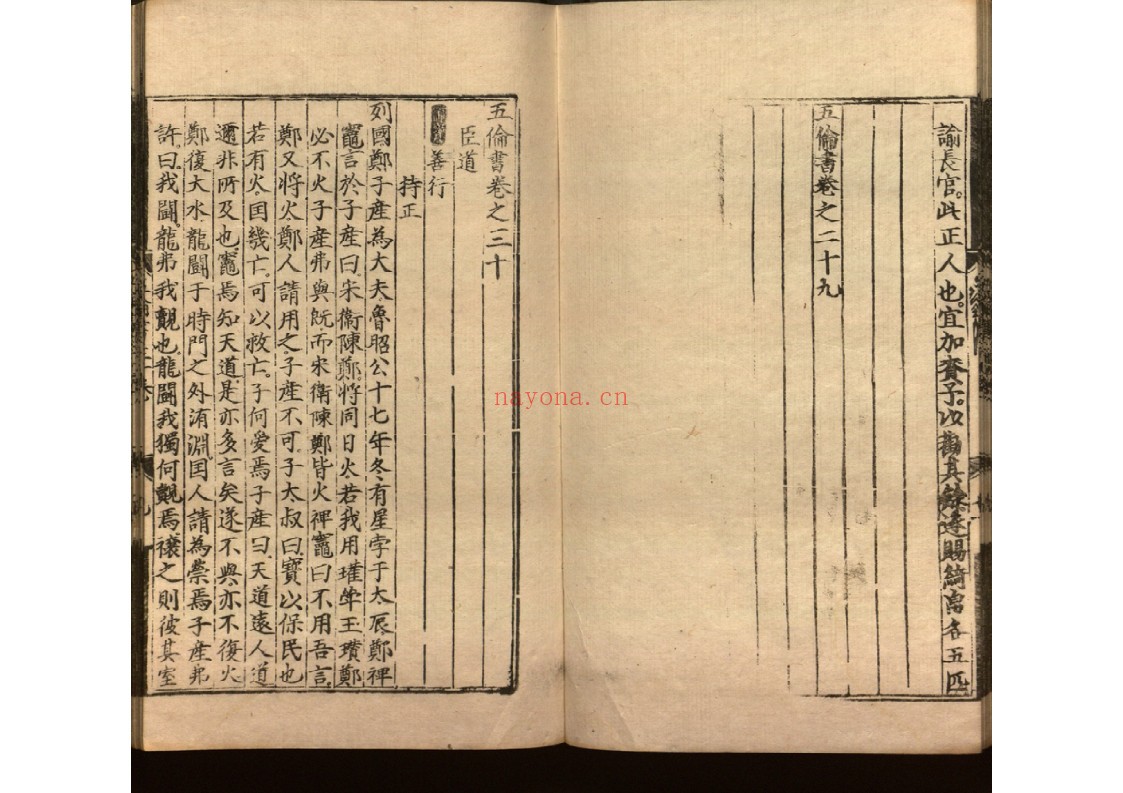 諭長官。此正人也。宜加賚予。以勸其餘。遂賜綺帛各五匹
五倫書卷之二十九
五倫書卷之三十
臣道
善行
持正
列國鄭子產為大夫。魯昭公十七年冬。有星孛于大辰。鄭裨
竈言於子產曰。宋衞陳鄭。將同日火。若我用瓘斚玉瓚。鄭
必不火。子產弗與。既而宋衞陳鄭皆火。裨竈曰。不用吾言。
鄭又將火。鄭人請用之。子產不可。子大叔曰。寳以保民也。
若有火。囯幾亡。可以救亡。子何愛焉。子產曰。天道遠。人道
邇。非所及也。竈焉知天道。是亦多言矣。遂不與。亦不復火。
鄭復大水。龍鬪于時門之外洧淵。囯人請為禜焉。子產弗
許。曰。我鬪。龍弗我覿也。龍鬪。我獨何覿焉。禳之則彼其室
nayona.cn